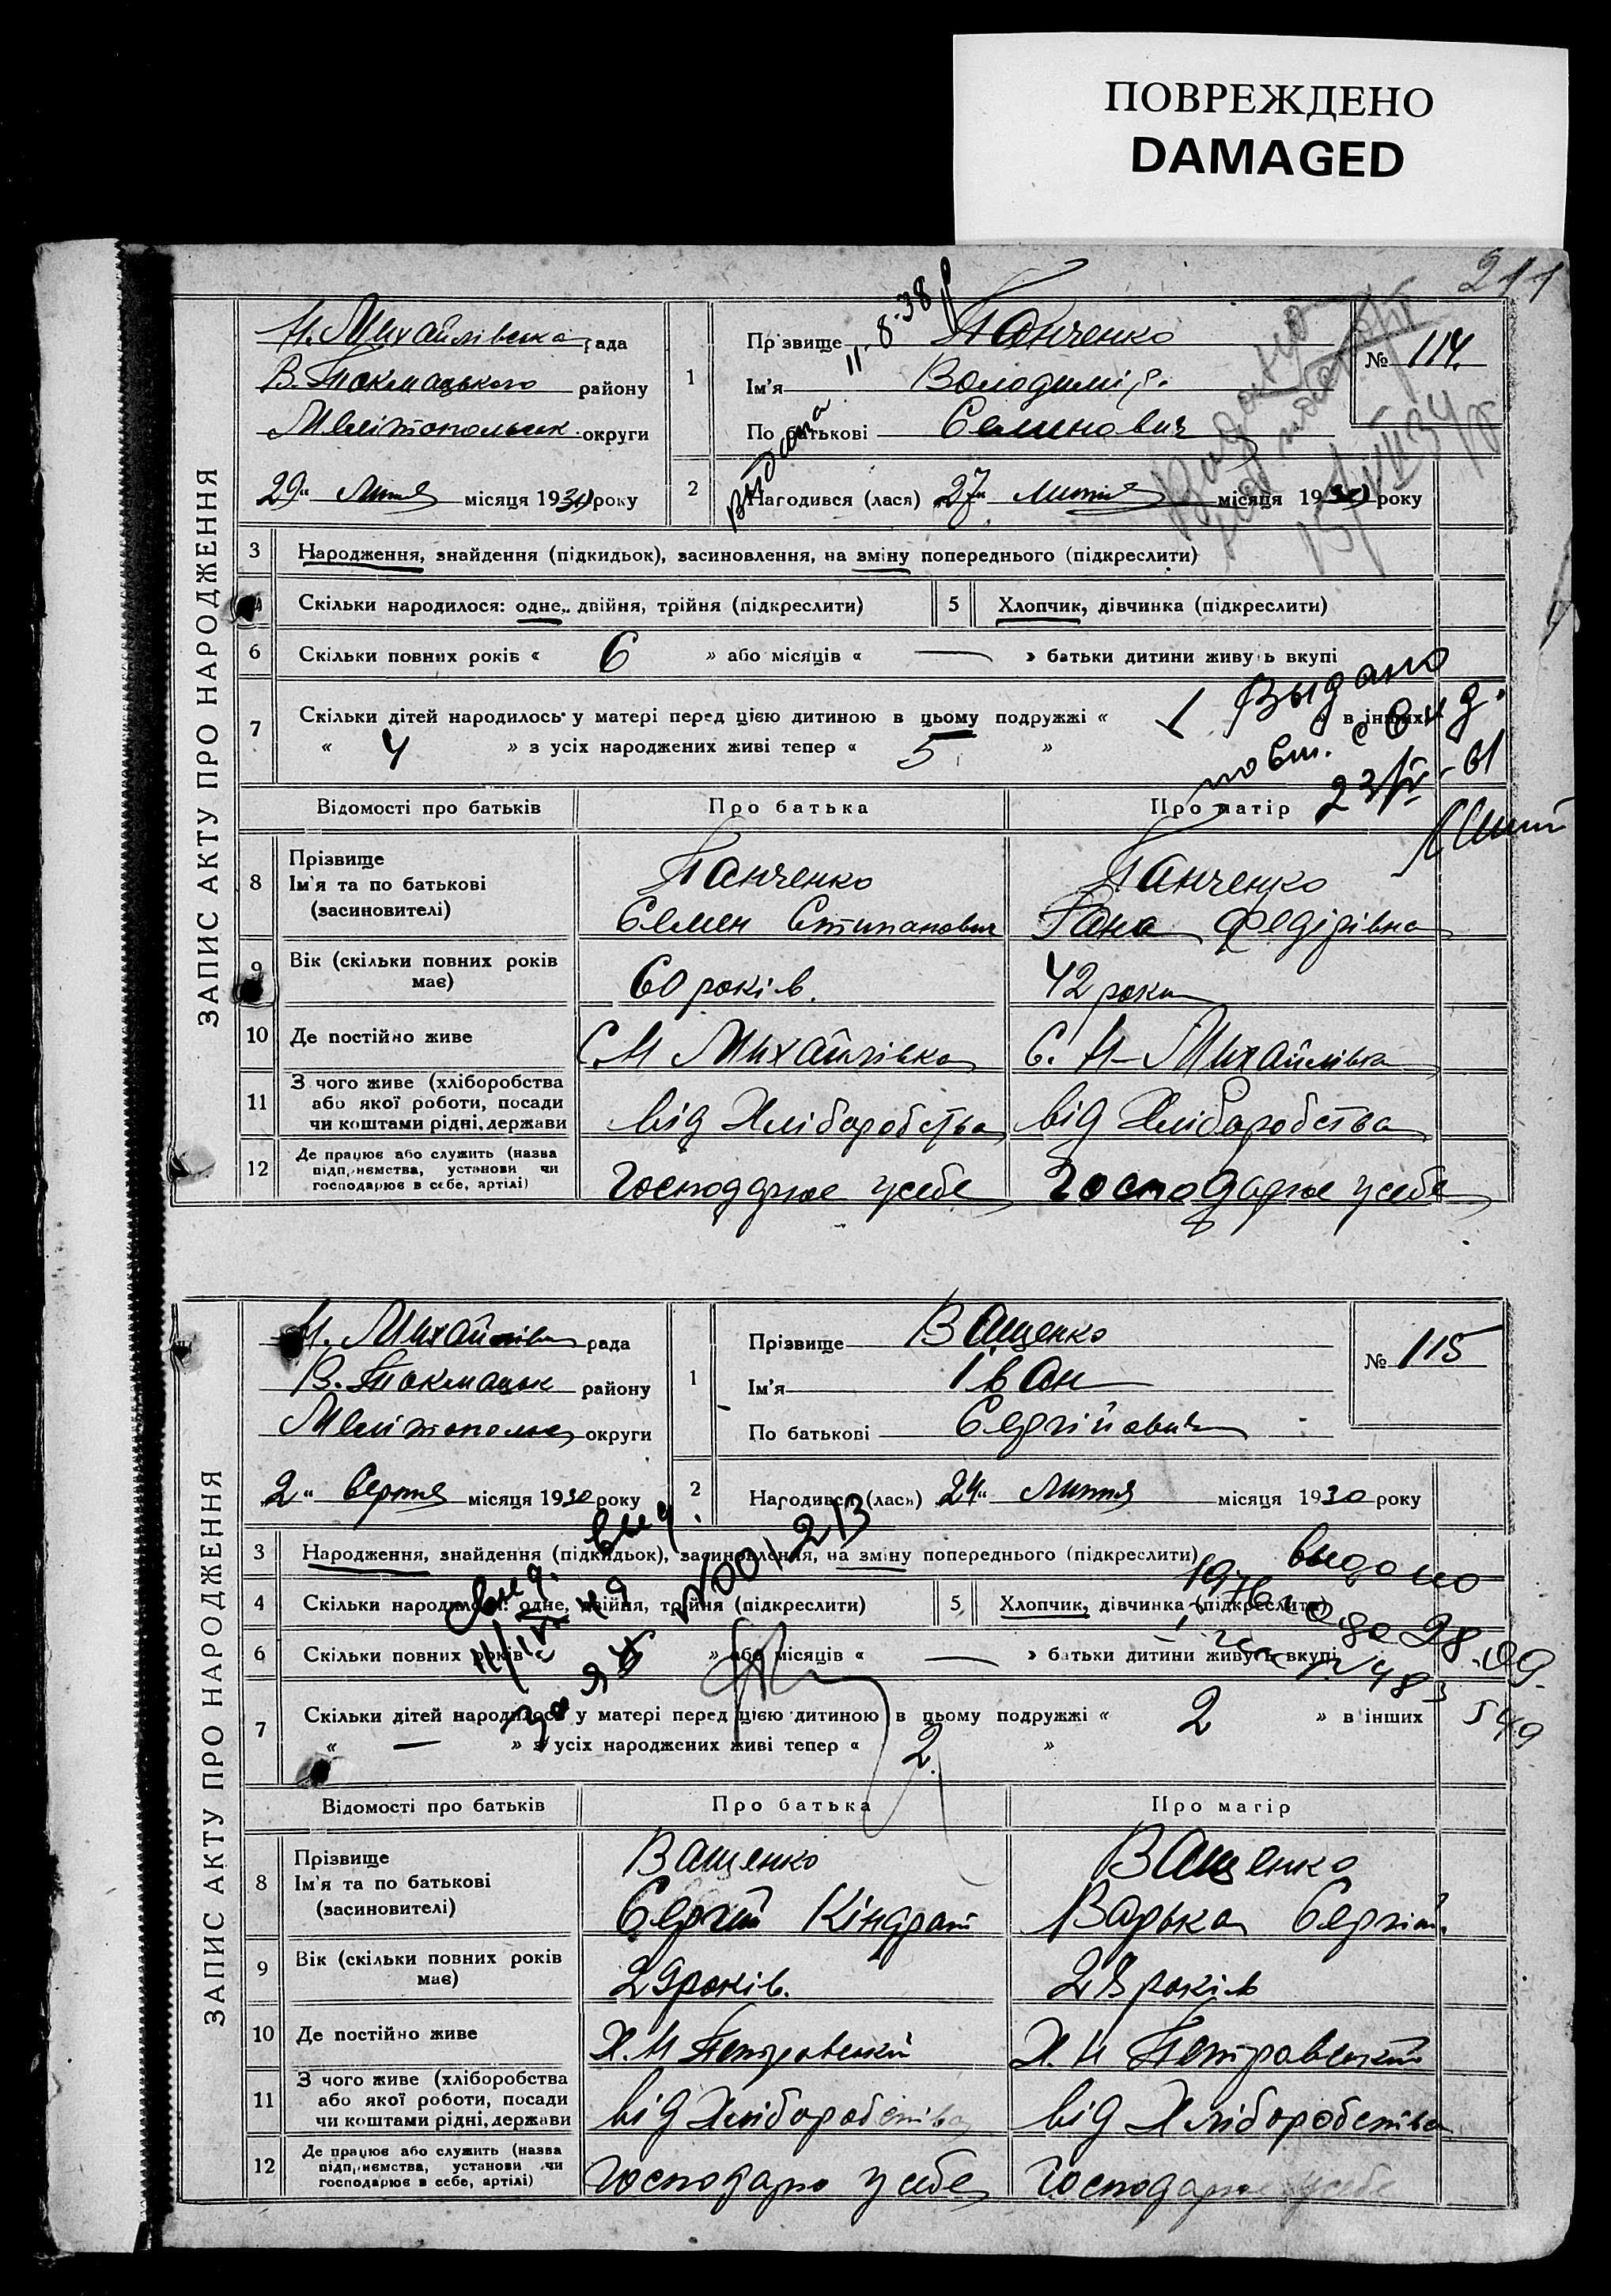 ПОВРЕЖДЕНО
DAMAGED
211
ЗАПИС АКТУ ПРО НАРОДЖЕННЯ
Н. Михайлівська рада
В. Токмацького району
Мелітопольськ округи
29" Липня місяця 1930 року
1
Прізвище Панченко
Ім'я Володимір.
По батькові Семенович
№ 114.
2
Народився (лася) 27" липня місяця 1930 року
Видана 11.8.38
3 Народження, знайдення (підкидьок), засиновлення, на зміну попереднього (підкреслити)
4 Скільки народилося: одне, двійня, трійня (підкреслити)
5 Хлопчик, дівчинка (підкреслити)
6 Скільки повних років « 6 » або місяців « — » батьки дитини живуть вкупі
7 Скільки дітей народилось у матері перед цією дитиною в цьому подружжі « 1 » в інших
« 4 » з усіх народжених живі тепер « 5 »
Выдано
повт. свид.
23/IV-61
Відомості про батьків Про батька Про матір
8 Прізвище
Ім'я та по батькові
(засиновителі)
Панченко
Семен Степанович
Панченко
Гана Федірівна
9 Вік (скільки повних років має)
60 років.
42 роки
10 Де постійно живе
С. Н Михайлівка
С. Н-Михайлівка
11 З чого живе (хліборобства
або якої роботи, посади
чи коштами рідні, держави
від Хліборобства
від Хліборобства
12 Де працює або служить (назва
підприємства, установи чи
господарює в себе, артілі)
Господарює у себе
Господарює у себе
ЗАПИС АКТУ ПРО НАРОДЖЕННЯ
Н. Михайлівська рада
В. Токмацьк району
Мелітопольс округи
2" Серпня місяця 1930 року
1
Прізвище Ващенко
Ім'я Іван
По батькові Сергійович
№ 115
2
Народився (лася) 24" Липня місяця 1930 року
3 Народження, знайдення (підкидьок), засиновлення, на зміну попереднього (підкреслити)
4 Скільки народилося: одне, двійня, трійня (підкреслити)
5 Хлопчик, дівчинка (підкреслити)
6 Скільки повних років « » або місяців « — » батьки дитини живуть вкупі
7 Скільки дітей народилось у матері перед цією дитиною в цьому подружжі « 2 » в інших
« — » з усіх народжених живі тепер « 2. »
выдано
1976 года 28.09.
Відомості про батьків Про батька Про матір
8 Прізвище
Ім'я та по батькові
(засиновителі)
Ващенко
Сергій Кіндрат
Ващенко
Варька Сергій.
9 Вік (скільки повних років має)
29 років.
28 років
10 Де постійно живе
Х. Н Петровський
Х. Н Петровський
11 З чого живе (хліборобства
або якої роботи, посади
чи коштами рідні, держави
від Хліборобства
від Хліборобства
12 Де працює або служить (назва
підприємства, установи чи
господарює в себе, артілі)
Господарю у себе
Господарює у себе